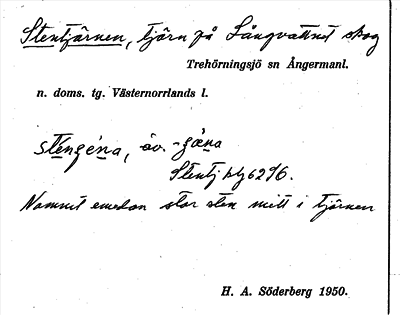 Stentjärnen, tjärn på Långvattnet skog
Trehörningsjö sn Ångermanl.
n. doms. tg. Västernorrlands l.
sténgèna, äv. -gæna
Stentj bl 62 76.
Namnet emedan stor sten mitt i tjärnen
H. A. Söderberg 1950.